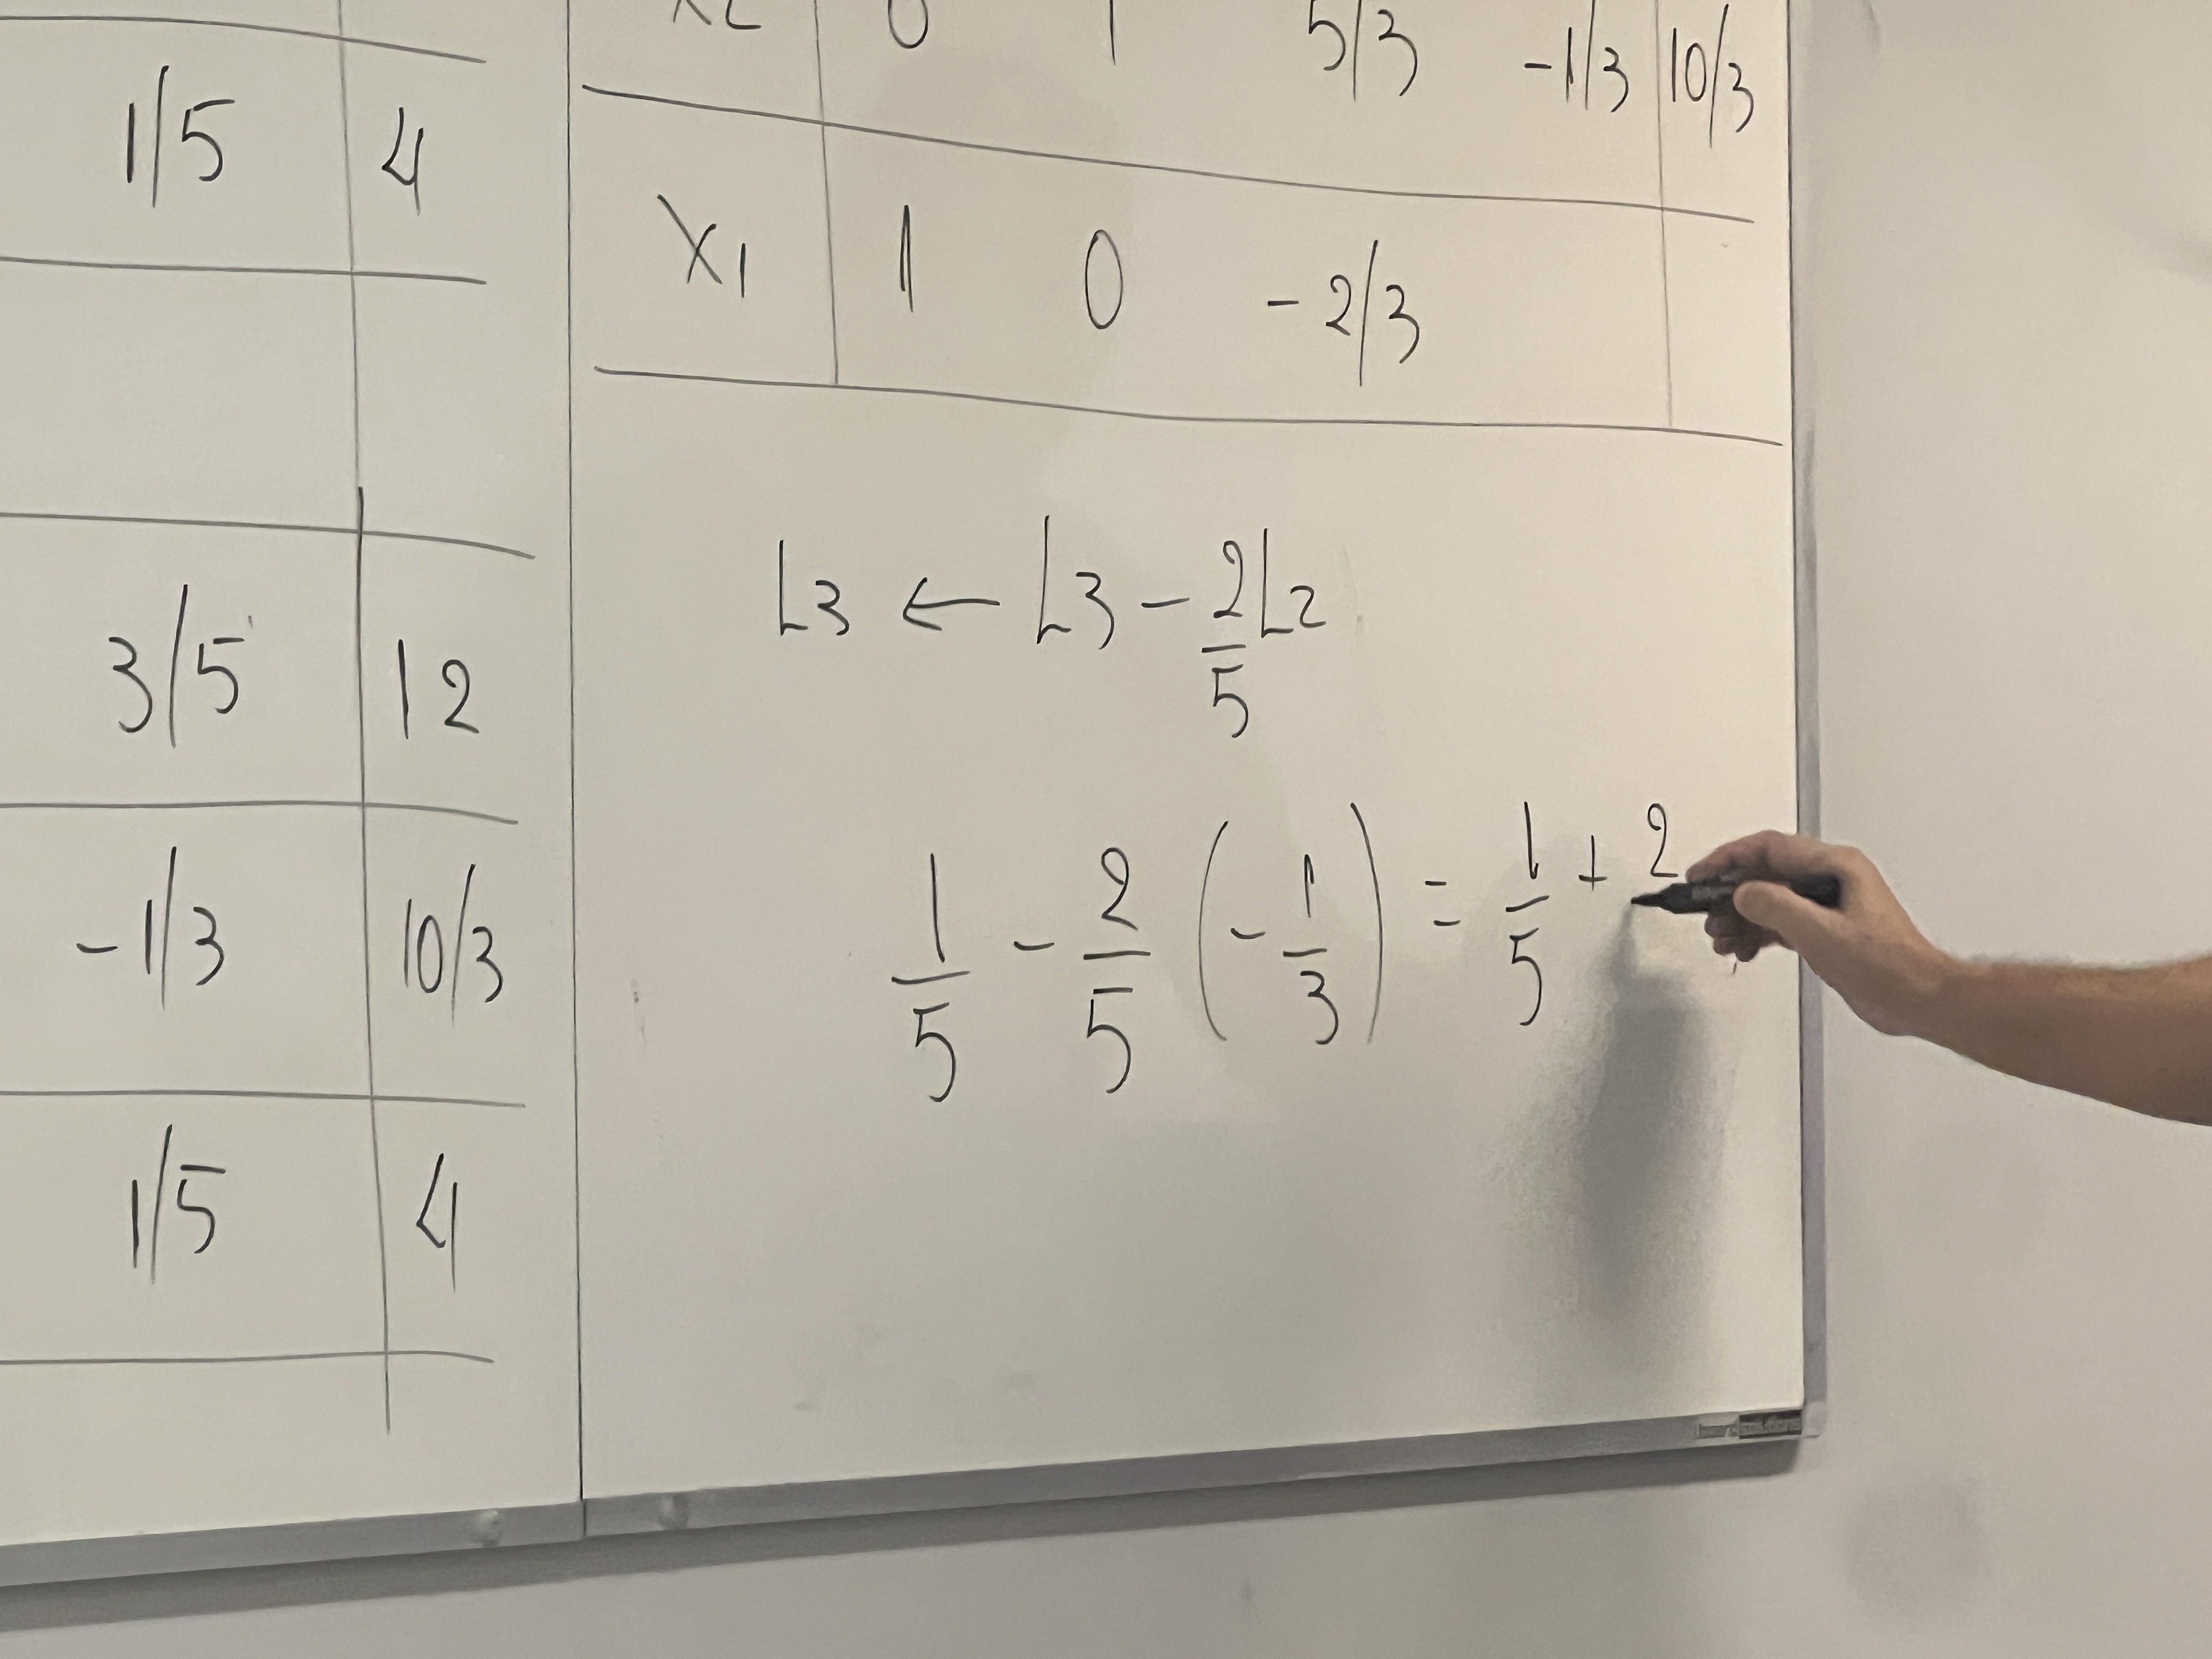 1/5 4
3/5 12
-1/3 10/3
1/5 4
X2 0 1 5/3 -1/3 10/3
X1 1 0 -2/3
L3 ← L3 - 2/5 L2
1/5 - 2/5 (-1/3) = 1/5 + 2